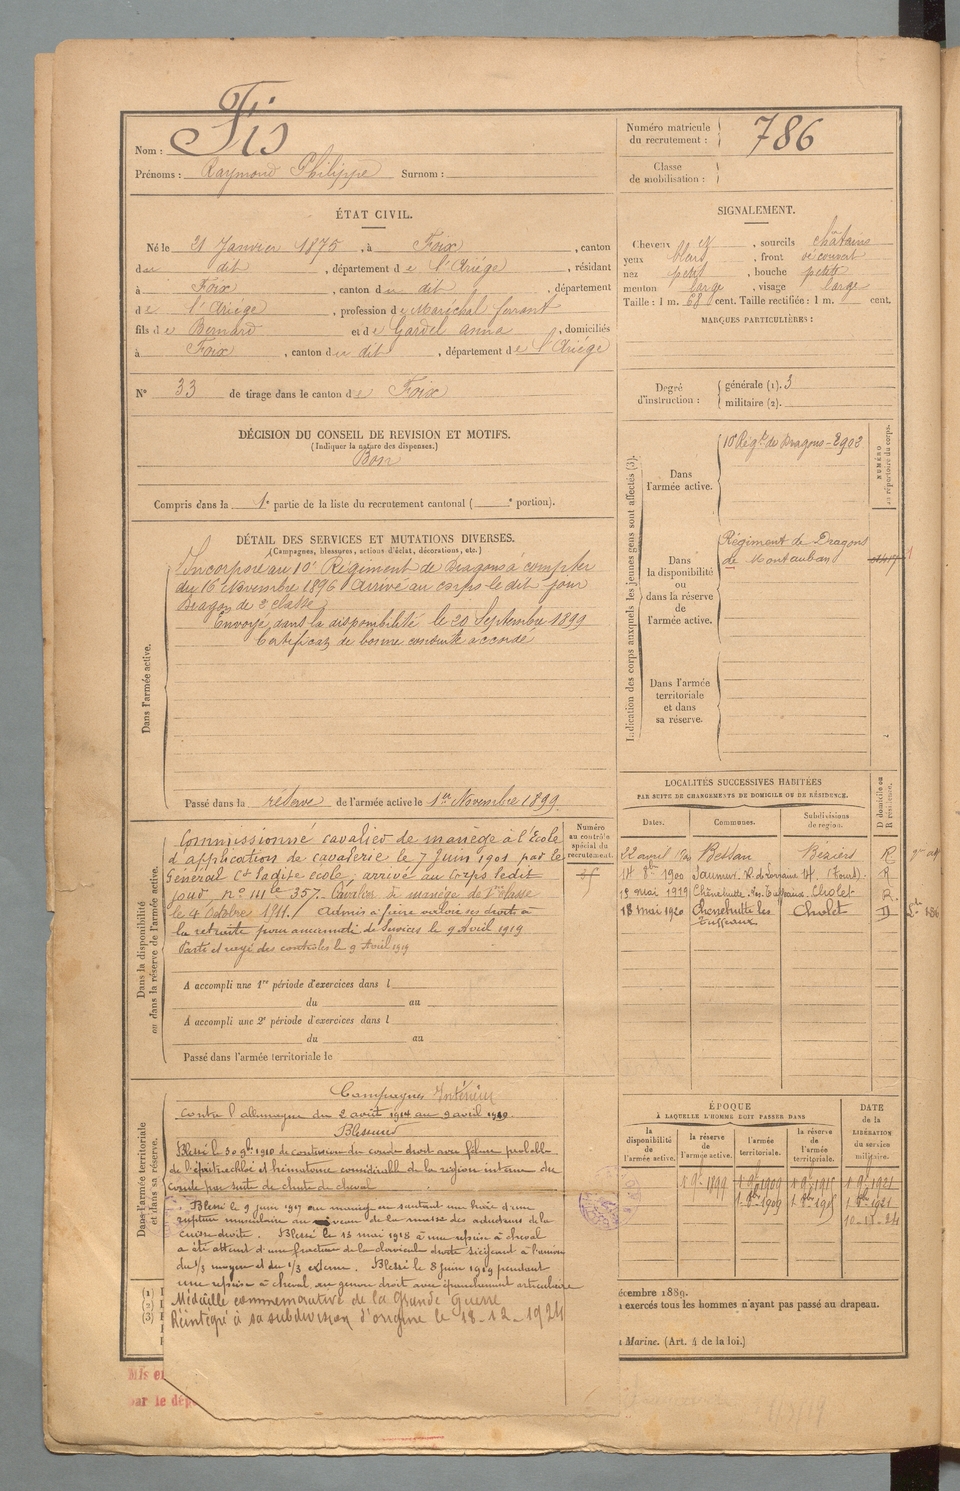 Nom : Fis
Prénoms : Raymond Philippe Surnom :
Numéro matricule du recrutement : 786
Classe de mobilisation :
ÉTAT CIVIL.
Né le 21 Janvier 1875, à Foix, canton
du dit, département de l'Ariège, résidant
à Foix, canton du dit, département
de l'Ariège, profession de Maréchal ferrant
fils de Bernard et de Gardel anna, domiciliés
à Foix, canton du dit, département de l'Ariège
N° 33 de tirage dans le canton de Foix
SIGNALEMENT.
Cheveux et, sourcils châtains
yeux bleus, front découvert
nez petit, bouche petite
menton large, visage large
Taille : 1 m. 68 cent. Taille rectifiée : 1 m. cent.
MARQUES PARTICULIÈRES :
Degré d'instruction : générale (1). 3
militaire (2).
DÉCISION DU CONSEIL DE REVISION ET MOTIFS.
(Indiquer la nature des dispenses.)
Bon
Compris dans la 1e partie de la liste du recrutement cantonal ( e portion).
DÉTAIL DES SERVICES ET MUTATIONS DIVERSES.
(Campagnes, blessures, actions d'éclat, décorations, etc.)
Dans l'armée active.
Incorporé au 10e Régiment de Dragons à compter
du 16 Novembre 1896 Arrivé au corps le dit jour
Dragon de 2e classe
Envoyé dans la disponibilité le 20 Septembre 1899
Certificat de bonne conduite accordé
Passé dans la réserve de l'armée active le 1er Novembre 1899.
Indication des corps auxquels les jeunes gens sont affectés (3).
NUMÉRO au répertoire du corps.
Dans l'armée active.
10e Régt de Dragons - 2902
Dans la disponibilité ou dans la réserve de l'armée active.
Régiment de Dragons
de Montauban
Dans l'armée territoriale et dans sa réserve.
Dans la disponibilité ou dans la réserve de l'armée active.
Numéro au contrôle spécial du recrutement.
Commissionné cavalier de manège à l'École
d'application de cavalerie le 7 Juin 1901 par le
Général Ct ladite école, arrivé au corps ledit
jour, n° mle 357. Cavalier de manège de 1ère classe
le 4 Octobre 1911. Admis à faire valoir ses droits à
la retraite pour ancienneté de Services le 9 Avril 1919
Parti et rayé des contrôles le 9 Avril 1919
A accompli une 1re période d'exercices dans l
du au
A accompli une 2e période d'exercices dans l
du au
Passé dans l'armée territoriale le
LOCALITÉS SUCCESSIVES HABITÉES
PAR SUITE DE CHANGEMENTS DE DOMICILE OU DE RÉSIDENCE.
Dates. Communes. Subdivisions de région. D domicile ou R résidence.
22 avril Bessan Béziers R
14 8bre 1900 Saumur, R. de Lorraine 14. (Tours). R
15 mai 1919 Chênehutte-les-Tuffeaux Cholet R.
18 mai 1920 Chenehutte les Tuffeaux Cholet D
Dans l'armée territoriale et dans sa réserve.
Campagnes Intérieur
Contre l'allemagne du 2 août 1914 au 9 avril 1919
Blessures
Blessé le 30 9bre 1910 de contusion du coude droit avec fêlure probable
de l'épitrochlée et hématome considérable de la région interne du
coude par suite de chute de cheval
Blessé le 9 juin 1917 au manège en sautant une haie d'une
rupture musculaire au niveau de la masse des adducteurs de la
cuisse droite. Blessé le 15 mai 1918 à une reprise à cheval
a été atteint d'une fracture de la clavicule droite siégeant à l'union
du 1/3 moyen et du 1/3 externe. Blessé le 8 juin 1919 pendant
une reprise à cheval, au genou droit avec épanchement articulaire
Médaille commemorative de la Grande Guerre
Réintégré à sa subdivision d'origine le 18-12-1924
ÉPOQUE À LAQUELLE L'HOMME DOIT PASSER DANS
DATE de la LIBÉRATION du service militaire.
la disponibilité de l'armée active. la réserve de l'armée active. l'armée territoriale. la réserve de l'armée territoriale.
1 9bre 1899 1 9bre 1909 1 9bre 1915 1 9bre 1921
1 8bre 1909 1 8bre 1915 1 8bre 1921
(1)
(2)
(3)
écembre 1889.
exercés tous les hommes n'ayant pas passé au drapeau.
Marine. (Art. 4 de la loi.)
Mis e
par le dép